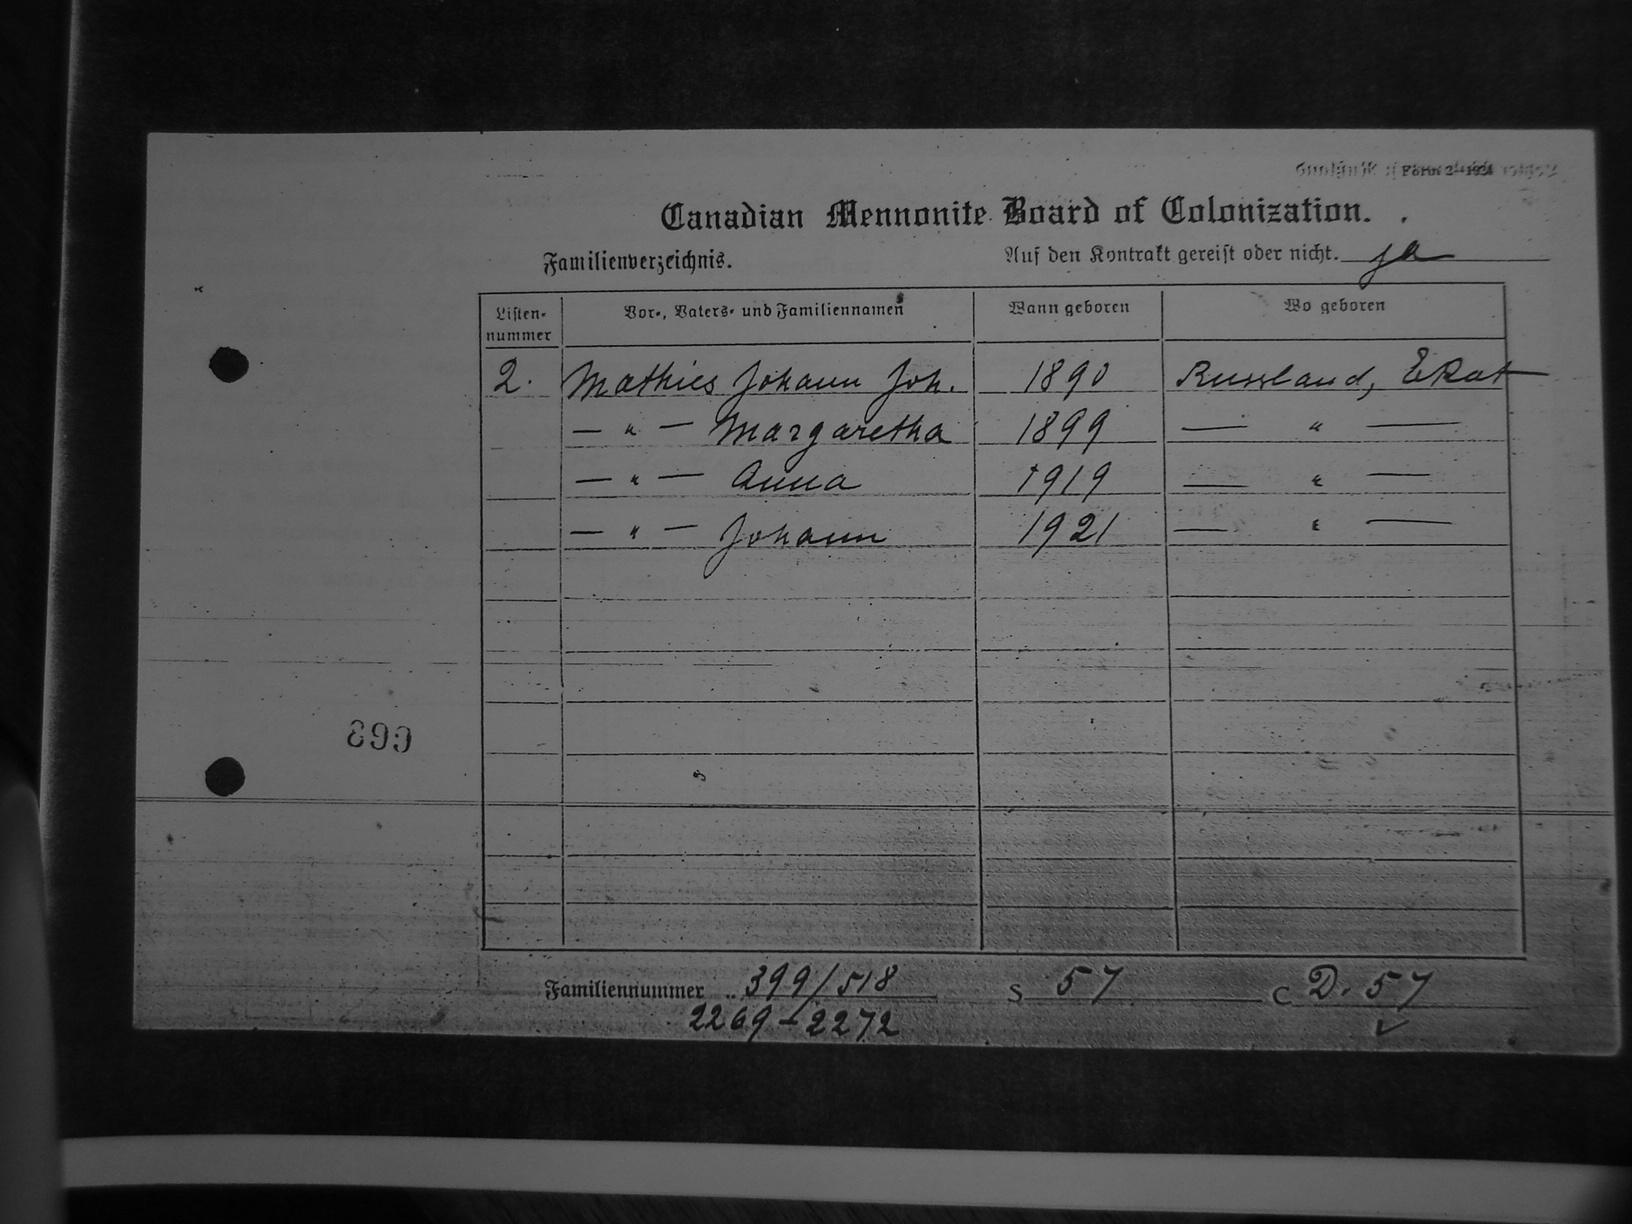 Form 2-1924
Canadian Mennonite Board of Colonization.
Familienverzeichnis. Auf den Kontrakt gereist oder nicht. ja
Listen-nummer Vor-, Vaters- und Familiennamen Wann geboren Wo geboren
2. Mathies Johann Joh. 1890 Russland, Ekat
— " — Margaretha 1899 — " —
— " — Anna 1919 — " —
— " — Johann 1921 — " —
Familiennummer 399/518 S 57 C D. 57
2269-2272